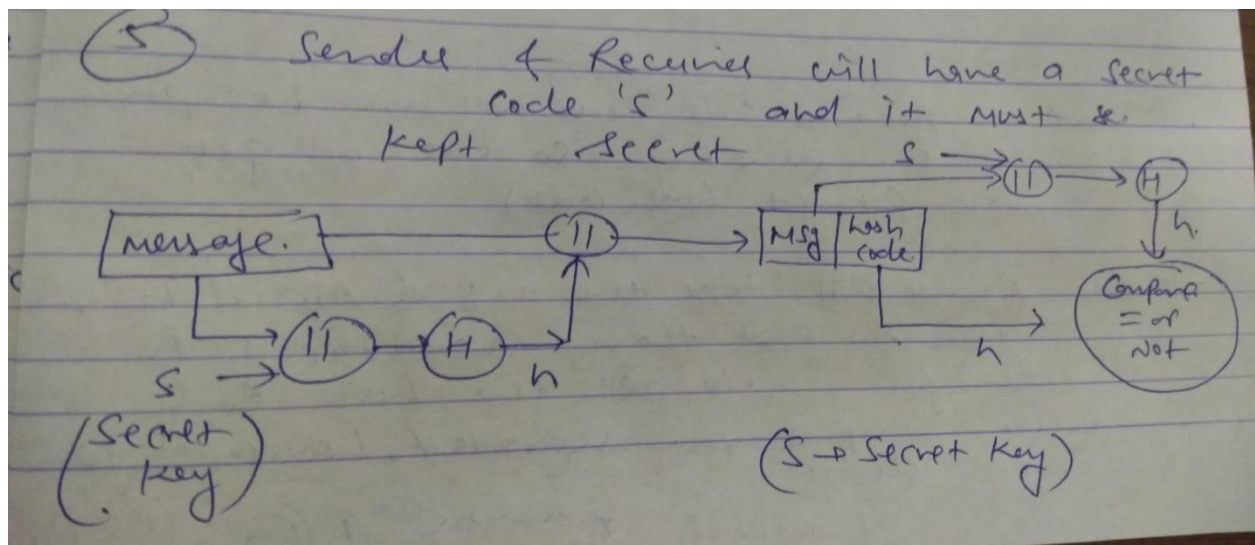 5 Sender & Reciever will have a secret
code 's' and it must be
kept secret
S → || → H
message. || → Msg | hash code
h
Compare
= or
Not
|| → H h
h
S
(Secret
key)
(S → Secret key)